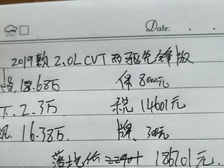 Date:
2019款 2.0L CVT 两驱先锋版
18.68万 保 8000元
下. 2.3万 税 14601元
16.38万. 牌 300元
落地价 18670元